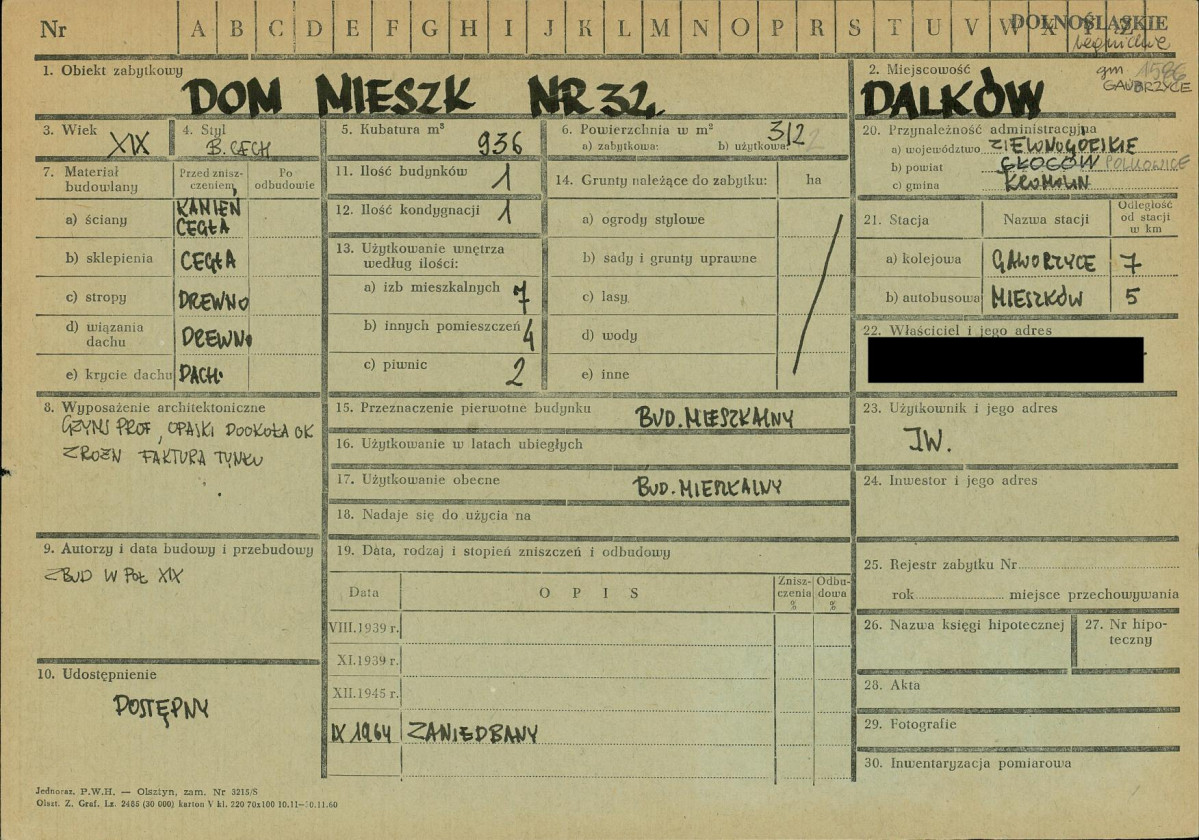 Nr A B C D E F G H I J K L M N O P R S T U V W X Y Z
DOLNOŚLĄSKIE
legnickie
gm 1586
GAWORZYCE
1. Obiekt zabytkowy
DOM MIESZK NR 32.
2. Miejscowość
DALKÓW
3. Wiek
XIX
4. Styl
B. CECH
5. Kubatura m³
936
6. Powierzchnia w m²
a) zabytkowa: b) użytkowa:
312
7. Materiał budowlany
Przed zniszczeniem
Po odbudowie
a) ściany KAMIEŃ CEGŁA
b) sklepienia CEGŁA
c) stropy DREWNO
d) wiązania dachu DREWNO
e) krycie dachu DACH.
8. Wyposażenie architektoniczne
GZYMS PROF, OPASKI DOOKOŁA OK
ZROZN FAKTURA TYNKU
9. Autorzy i data budowy i przebudowy
ZBUD W POŁ XIX
10. Udostępnienie
DOSTĘPNY
11. Ilość budynków 1
12. Ilość kondygnacji 1
13. Użytkowanie wnętrza
według ilości:
a) izb mieszkalnych 7
b) innych pomieszczeń 4
c) piwnic 2
14. Grunty należące do zabytku: ha
a) ogrody stylowe
b) sady i grunty uprawne
c) lasy
d) wody
e) inne
15. Przeznaczenie pierwotne budynku BUD. MIESZKALNY
16. Użytkowanie w latach ubiegłych
17. Użytkowanie obecne BUD. MIESZKALNY
18. Nadaje się do użycia na
19. Data, rodzaj i stopień zniszczeń i odbudowy
Data O P I S Zniszczenia % Odbudowa %
VIII.1939 r.
XI.1939 r.
XII.1945 r.
IX 1964 ZANIEDBANY
20. Przynależność administracyjna
a) województwo ZIELONOGÓRSKIE
b) powiat GŁOGÓW POLKOWICE
c) gmina KROMOLIN
21. Stacja Nazwa stacji Odległość od stacji w km
a) kolejowa GAWORZYCE 7
b) autobusowa MIESZKÓW 5
22. Właściciel i jego adres
23. Użytkownik i jego adres
JW.
24. Inwestor i jego adres
25. Rejestr zabytku Nr
rok miejsce przechowywania
26. Nazwa księgi hipotecznej
27. Nr hipoteczny
28. Akta
29. Fotografie
30. Inwentaryzacja pomiarowa
Jednoraz. P.W.H. — Olsztyn, zam. Nr 3215/S
Olszt. Z. Graf. Lz. 2486 (30 000) karton V kl. 220 70x100 10.11—30.11.60